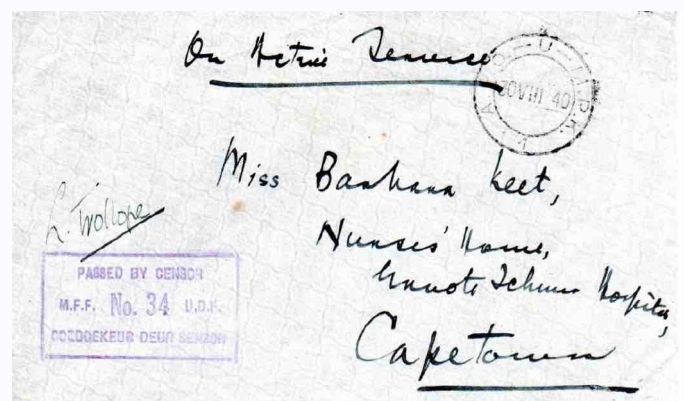 On Active Service
A.P.O.-U-M.P.K.
30 VIII 40
Miss Barbara Keet,
Nurses' Home,
Groote Schuur Hospital,
Capetown
L. Trollope
PASSED BY CENSOR
M.F.F. No. 34 U.D.F.
GOEDGEKEUR DEUR SENSOR